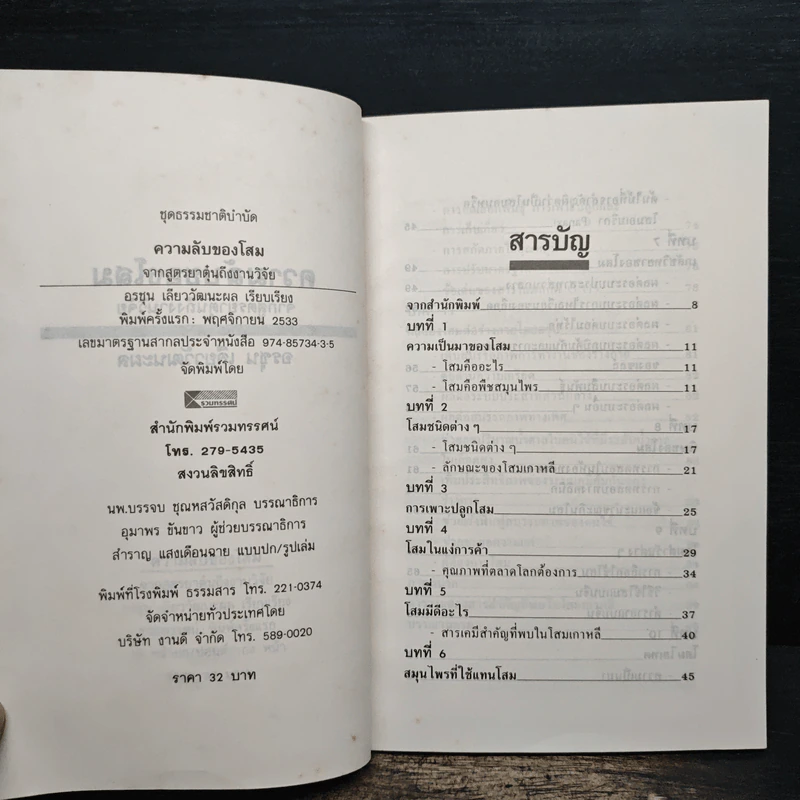 ชุดธรรมชาติบำบัด
ความลับของโสม
จากสูตรยาตุ๋นถึงงานวิจัย
อรชุน เลียววัฒนะผล เรียบเรียง
พิมพ์ครั้งแรก : พฤศจิกายน 2533
เลขมาตรฐานสากลประจำหนังสือ 974-85734-3-5
จัดพิมพ์โดย
รวมทรรศน์
สำนักพิมพ์รวมทรรศน์
โทร. 279-5435
สงวนลิขสิทธิ์
นพ.บรรจบ ชุณหสวัสดิกุล บรรณาธิการ
อุมาพร ขันขาว ผู้ช่วยบรรณาธิการ
สำราญ แสงเดือนฉาย แบบปก/รูปเล่ม
พิมพ์ที่โรงพิมพ์ ธรรมสาร โทร. 221-0374
จัดจำหน่ายทั่วประเทศโดย
บริษัท งานดี จำกัด โทร. 589-0020
ราคา 32 บาท
สารบัญ
จากสำนักพิมพ์ 8
บทที่ 1
ความเป็นมาของโสม 11
- โสมคืออะไร 11
- โสมคือพืชสมุนไพร 11
บทที่ 2
โสมชนิดต่าง ๆ 17
- โสมชนิดต่าง ๆ 17
- ลักษณะของโสมเกาหลี 21
บทที่ 3
การเพาะปลูกโสม 25
บทที่ 4
โสมในแง่การค้า 29
- คุณภาพที่ตลาดโลกต้องการ 34
บทที่ 5
โสมมีดีอะไร 37
- สารเคมีสำคัญที่พบในโสมเกาหลี 40
บทที่ 6
สมุนไพรที่ใช้แทนโสม 45